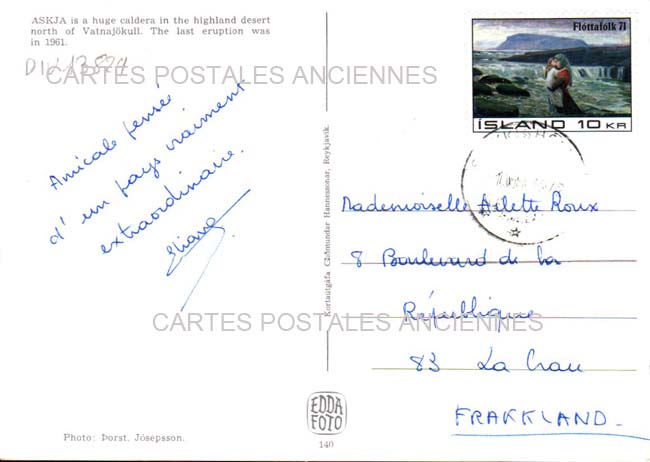 ASKJA is a huge caldera in the highland desert
north of Vatnajökull. The last eruption was
in 1961.
CARTES POSTALES ANCIENNES
Amicale pensée
d'un pays vraiment
extraordinaire.
Eliane
Flóttafólk 71
ÍSLAND 10 KR
Mademoiselle Arlette Roux
8 Boulevard de la
République
83 La Crau
FRAKKLAND
CARTES POSTALES ANCIENNES
Kortaútgáfa Guðmundar Hannessonar, Reykjavík.
EDDA
FOTO
140
Photo: Þorst. Jósepsson.